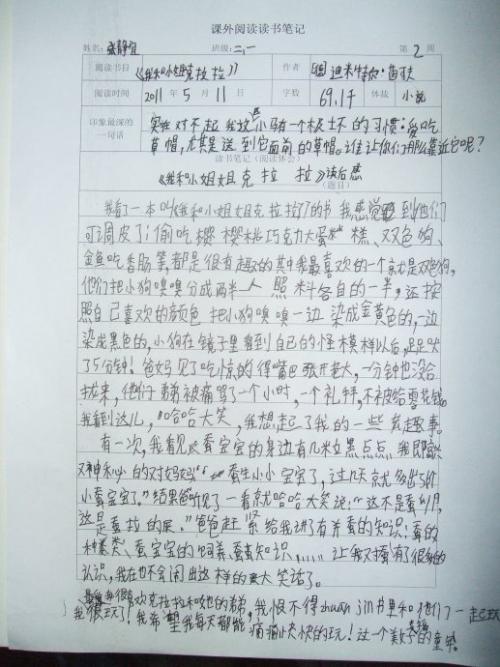 课外阅读读书笔记
姓名： 张静宜 班级：二、一 第 2 周
阅读书目 《我和小姐姐克拉拉》 作者 德 迪米特尔·茵可夫
阅读时间 2011 年 5 月 11 日 字数 69.1千 体裁 小说
印象最深的一句话
实在对不起我这小马有一个极坏的习惯：爱吃
草帽，尤其是送到它面前的草帽。谁让你们那么靠近它呢？
读书笔记（阅读体会）
《我和小姐姐克拉拉》读后感
（题目）
我看了一本叫《我和小姐姐克拉拉》的书我感觉到他们
可调皮了！偷吃樱桃巧克力大蛋糕、双色狗、
金鱼吃香肠等都是很有趣的其中我最喜欢的一个就是双色狗，
他们把小狗嗅嗅分成两半一人照料各自的一半，还按
照自己喜欢的颜色把小狗嗅嗅一边染成金黄色的，一边
染成黑色的，小狗在镜子里看到自己的怪模样以后，足足吠
了5分钟！爸妈见了吃惊的得嘴巴张大，一分钟也没合
拢来，他们被痛骂了一个小时，一个礼拜不被给零花钱
我看到这儿，哈哈大笑，我想起了我的一些趣事。
有一次，我看见蚕宝宝的身边有几米立黑点点，我即
又神秘的对妈妈 蚕生小小宝宝了，过几天就多出5个
小蚕宝宝了。”结果爸听见了一看就哈哈大笑说：“这不是蚕卵，
这是蚕拉的屎。”爸爸赶紧给我讲了有关蚕的知识：蚕的
种类、蚕宝宝的饲养、蚕知识……让我又有了很多的
认识，我在也不会闹出这样的大笑话了。
我很喜欢克拉拉和她的弟弟，我恨不得zhuan jin书里和他们一起玩
我很玩了！我希望我每天都能痛痛快快的玩！过一个美好的童年。